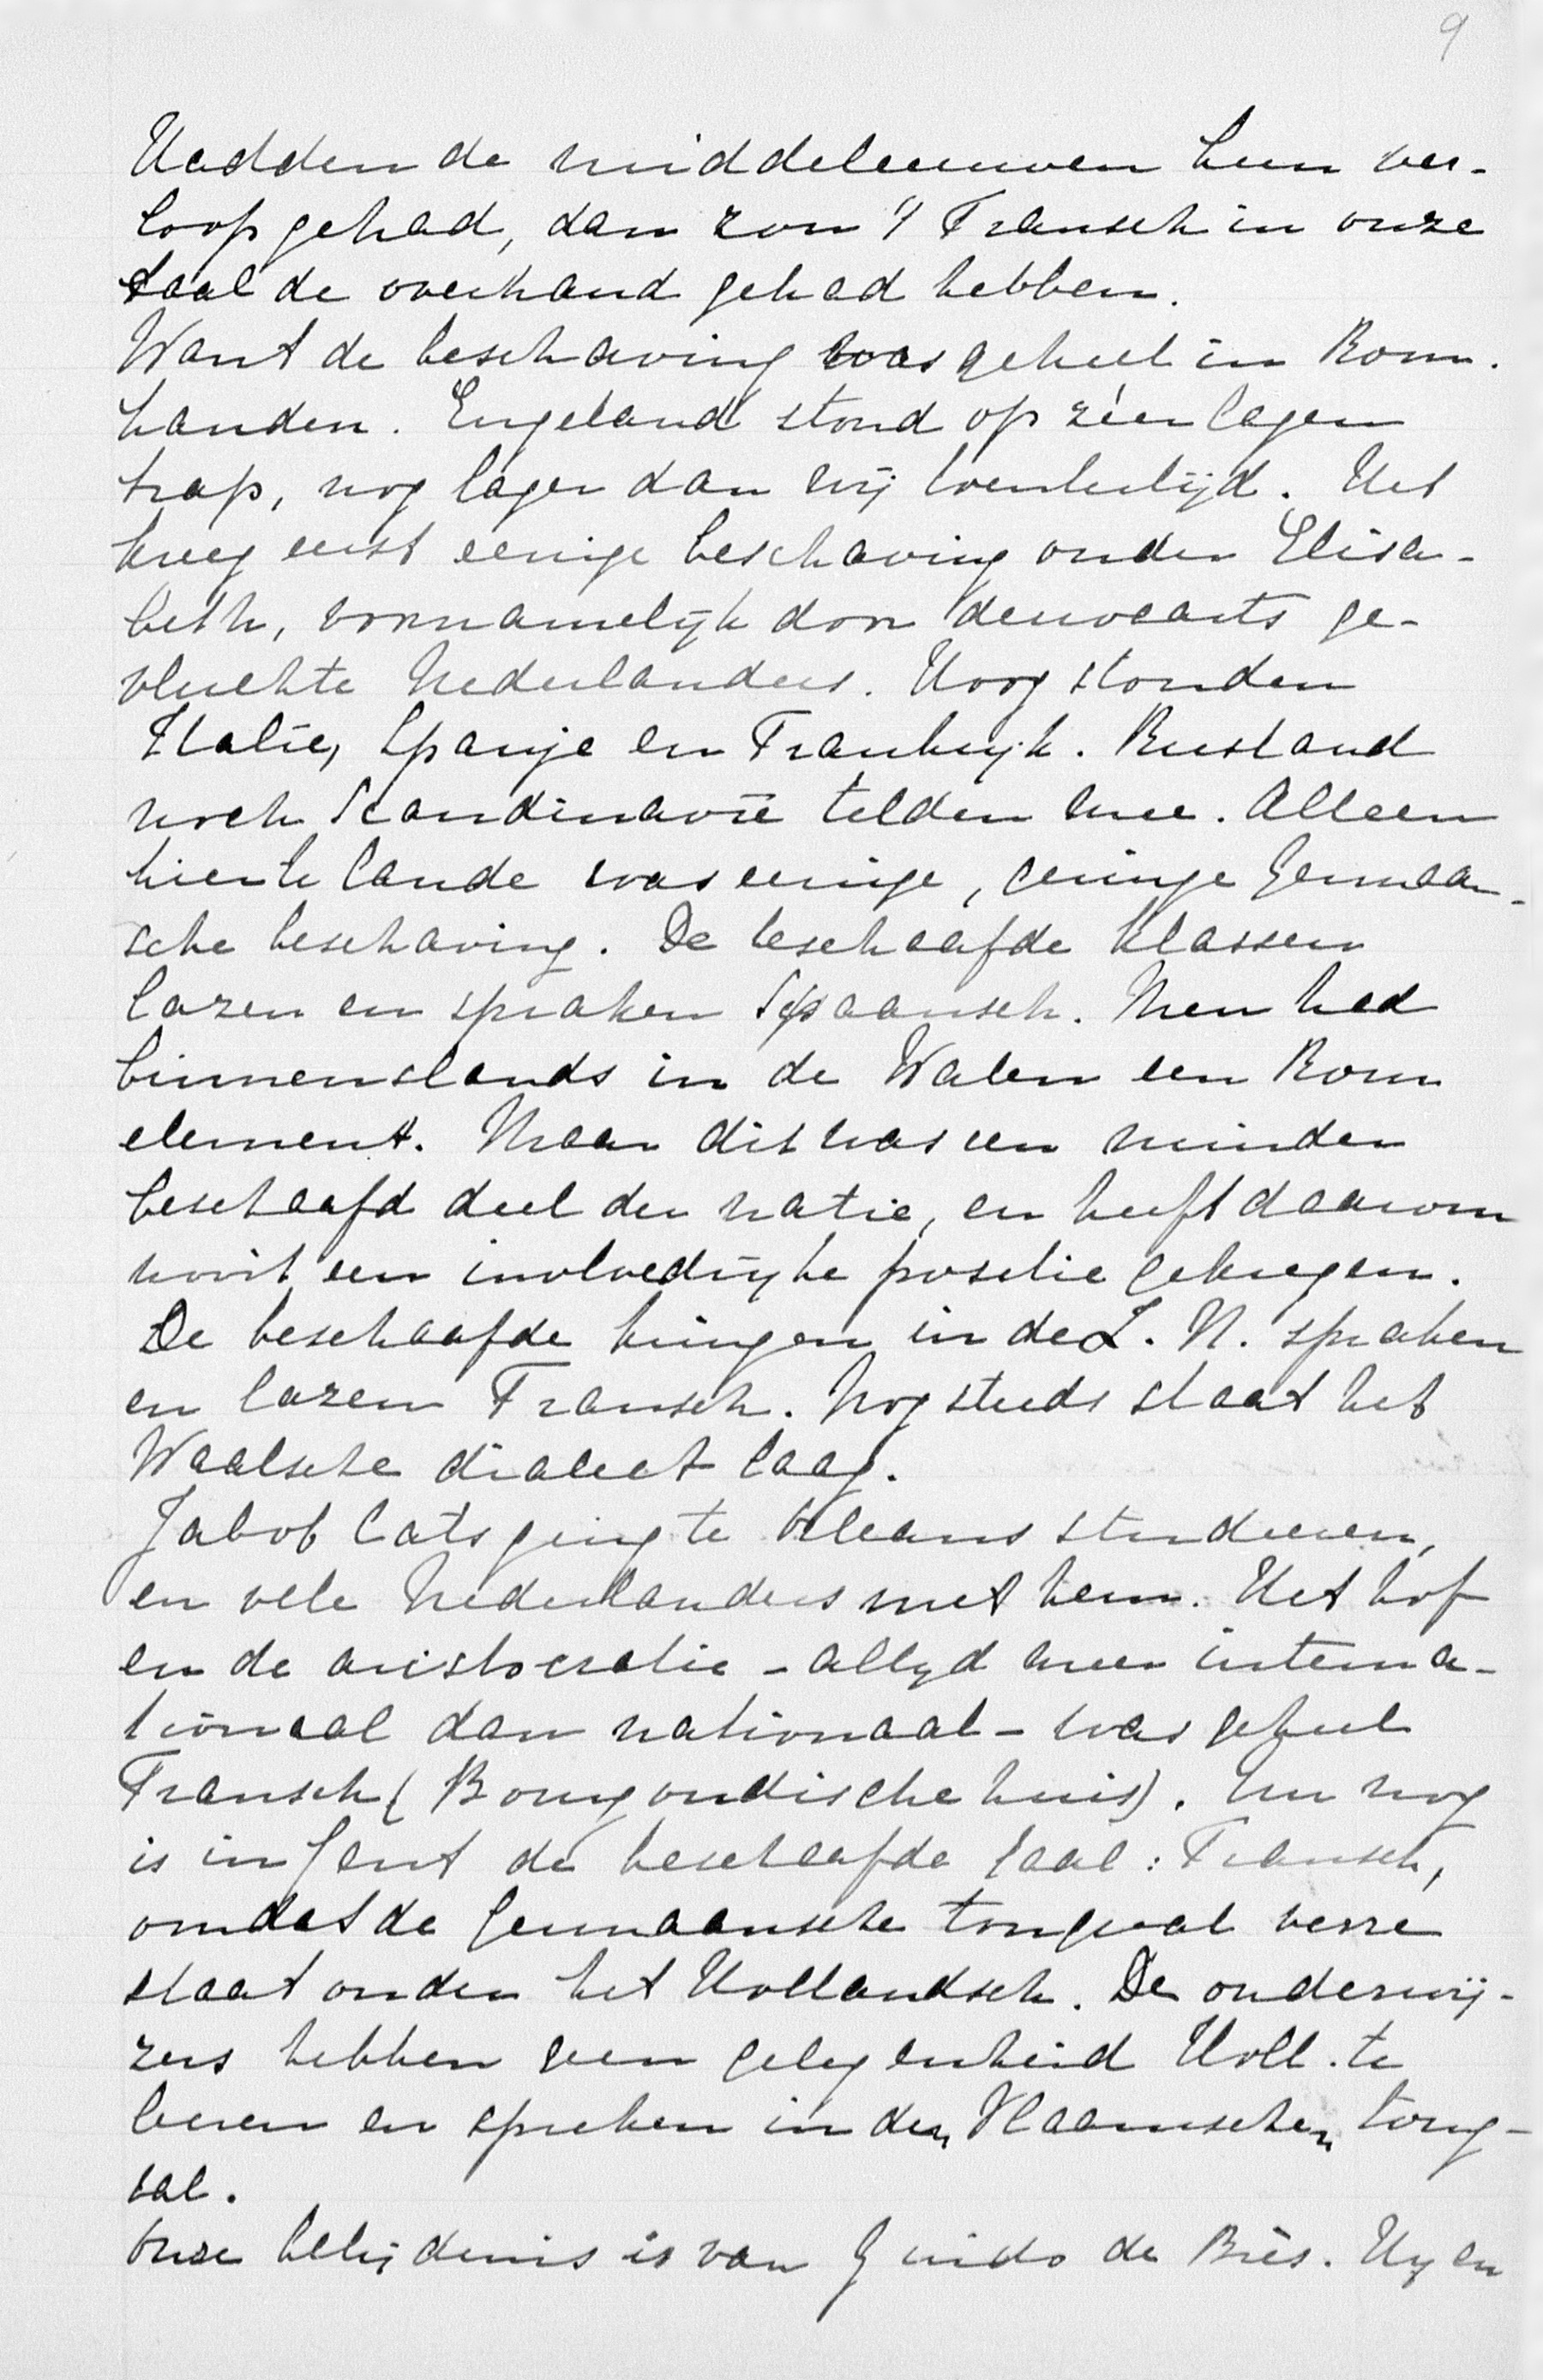 9
Hadden de middeleeuwen hun ver-
loop gehad, dan zou 't Fransch in onze
taal de overhand gehad hebben.
Want de beschaving was geheel in Rom.
handen. Engeland stond op zéér lagen
trap, nog lager dan wij toentertijd. Het
kreeg eerst eenige beschaving onder Elisa-
beth, voornamelijk door derwaarts ge-
vluchte Nederlanders. Hoog stonden
Italië, Spanje en Frankrijk. Rusland
noch Scandinavië telden mee. Alleen
hier te lande was eenige, geringe Germaan-
sche beschaving. De beschaafde klassen
lazen en spraken Spaansch. Men had
binnenslands in de Walen een Rom
element. Maar dit was een minder
beschaafd deel der natie, en heeft daarom
nooit een invloedrijke positie gekregen.
De beschaafde kringen in de Z. N. spraken
en lazen Fransch. Nog steeds staat het
Waalsche dialect laag.
Jakob Cats ging te Orleans studeeren,
en vele Nederlanders met hem. Het hof
en de aristocratie - altyd meer interna-
tionaal dan nationaal - was geheel
Fransch (Bourgondische huis). Nu nog
is in Gent de beschaafde taal: Fransch,
omdat de Germaansche tongval verre
staat onder het Hollandsch. De onderwij-
zers hebben geen gelegenheid Holl. te
leeren en spreken in den Vlaamschen tong-
val.
Onze belijdenis is van Guido de Brès. Hy en